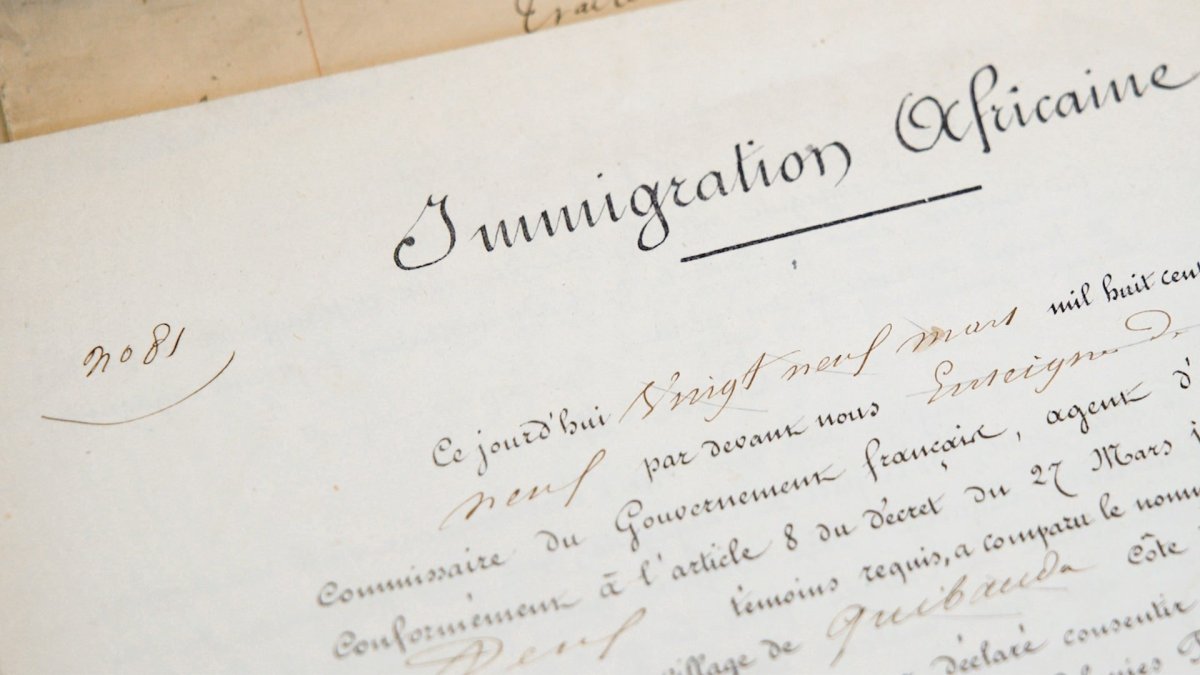 Immigration Africaine
no 81
Ce jourd'hui Vingt neuf mars mil huit cent
neuf par devant nous Enseigne de
Commissaire du Gouvernement français, agent d'é
Conformément à l'article 8 du décret du 27 Mars
témoins requis, a comparu le nommé
village de Quibanda Côte
déclaré consentir